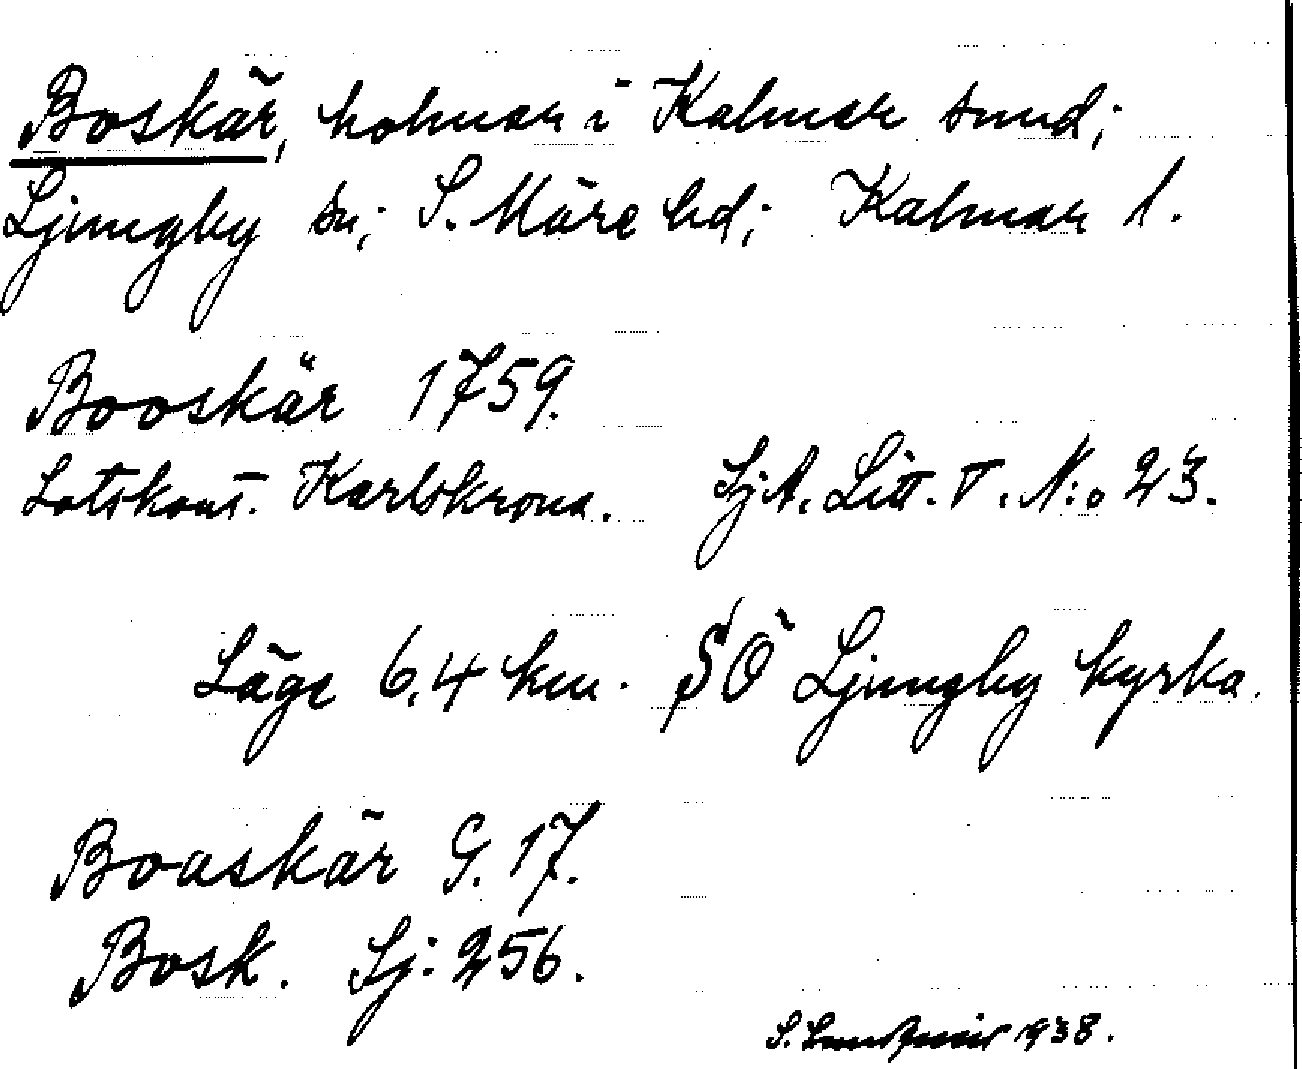 Boskär, holmar i Kalmar sund;
Ljungby sn; S. Möre hd; Kalmar l.
Booskär 1759.
Lotskont. Karlskrona. Sj.A. Litt. T. N:o 23.
Läge 6,4 km. SÖ Ljungby kyrka.
Boaskär G. 17.
Bosk. Sj: 256.
S. 1938.